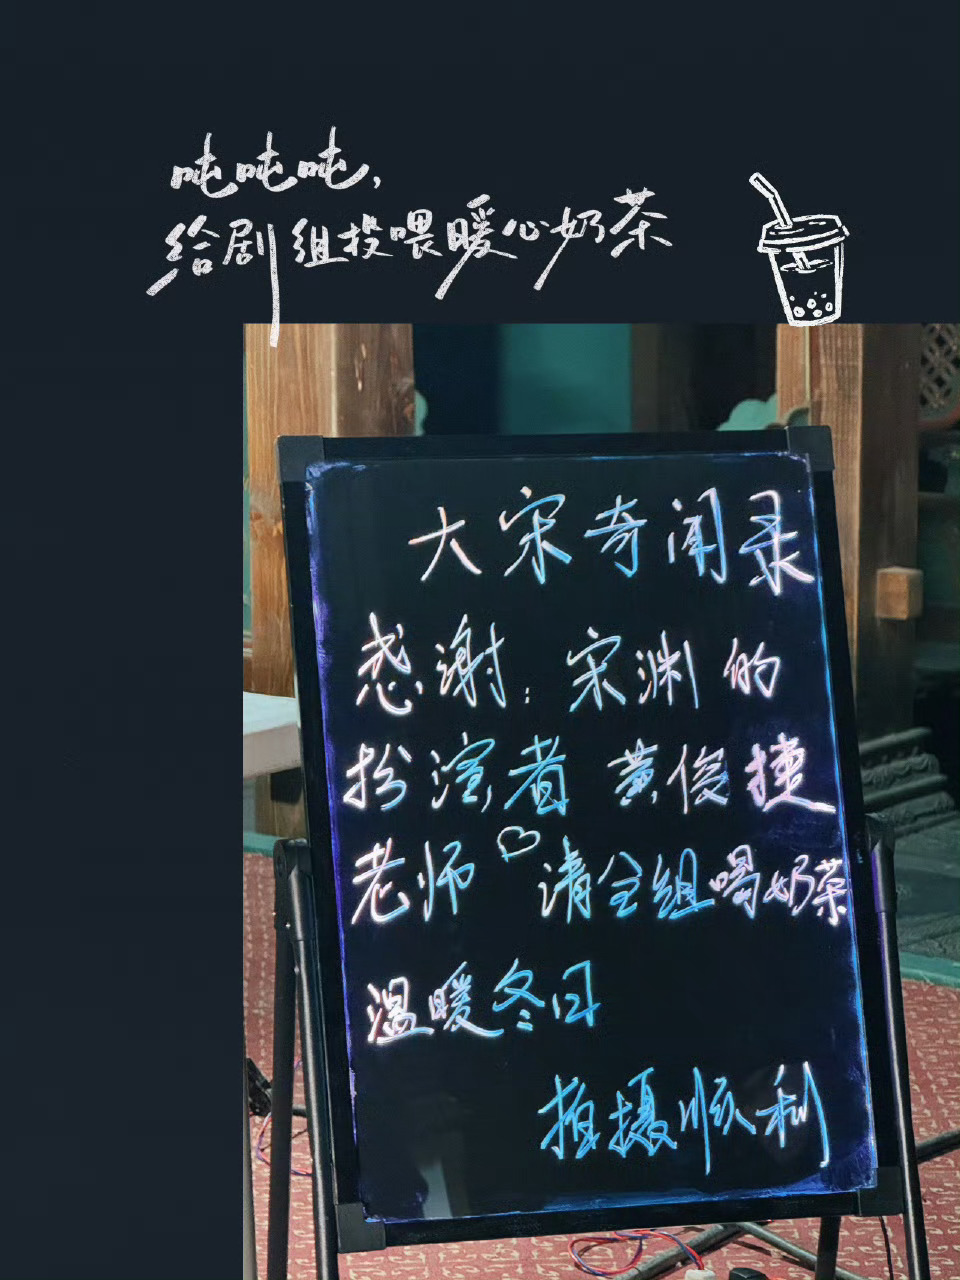 吨吨吨,
给剧组投喂暖心奶茶
大宋奇闻录
感谢:宋渊的
扮演者 黄俊捷
老师♡ 请全组喝奶茶
温暖冬日
拍摄顺利